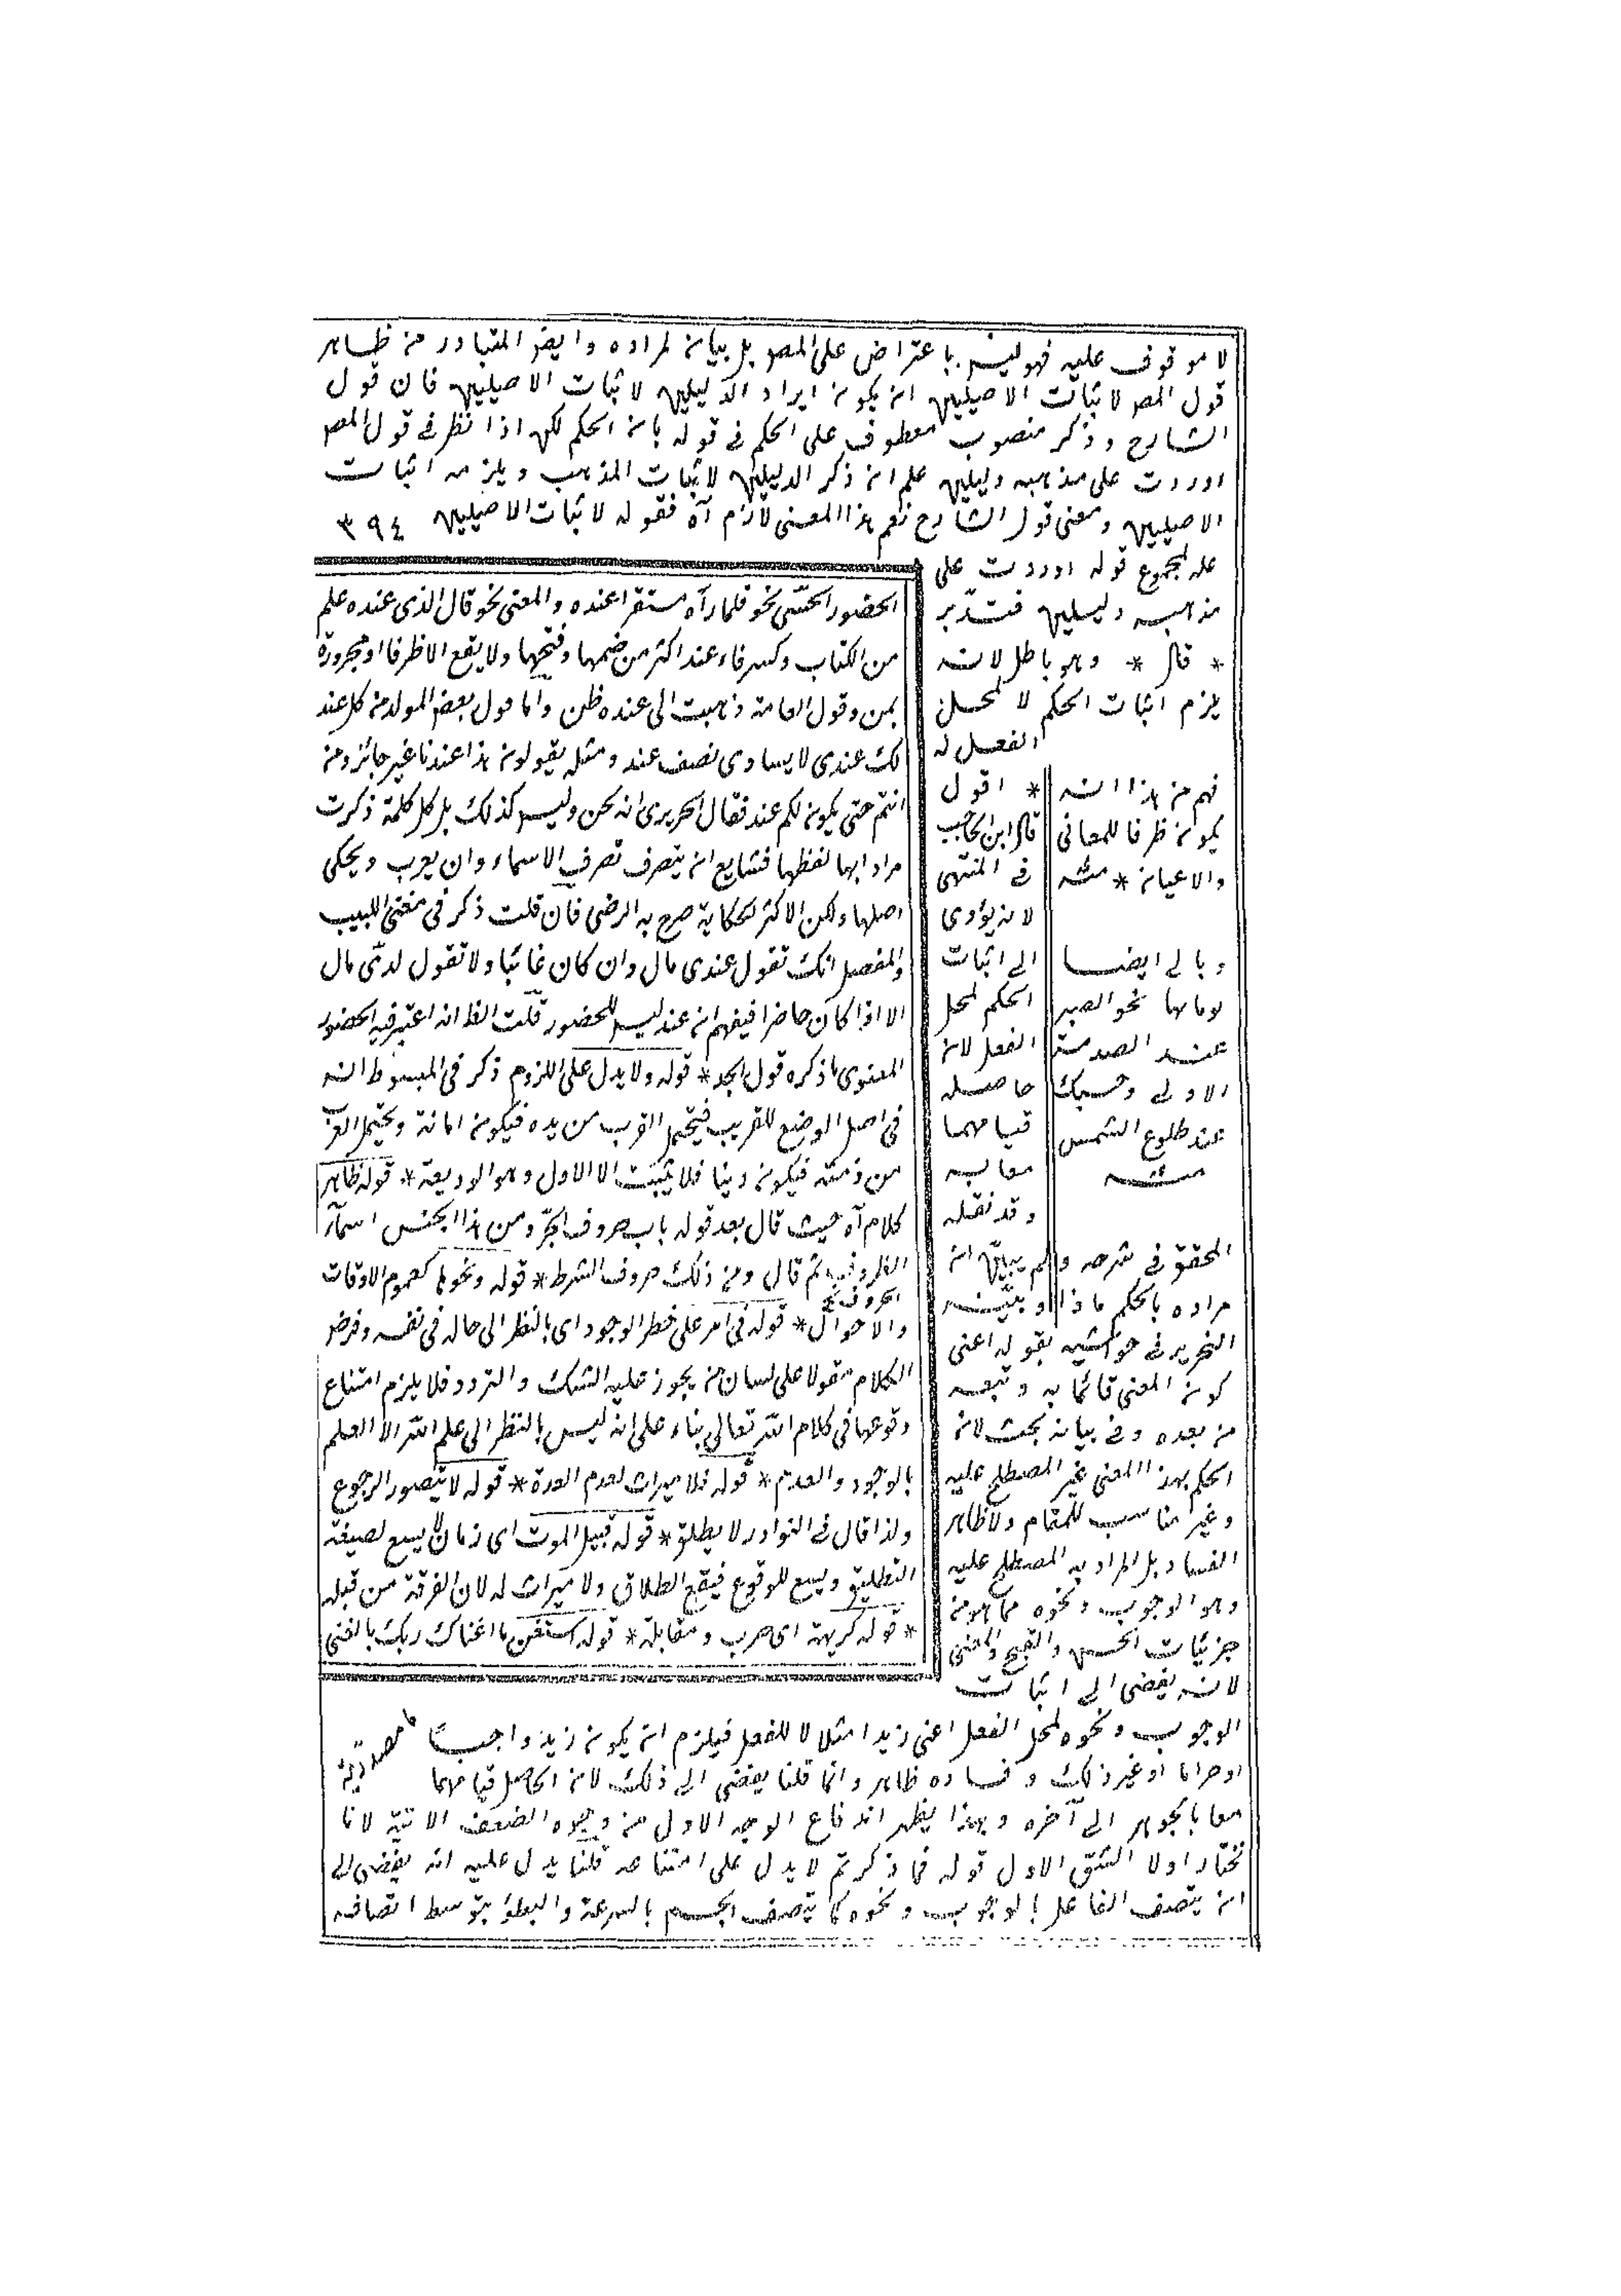 لا موقوف عليه فهو ليس باعتراض على المصر بل بيان لمراده وايضر المتبادر من ظاهر
قول المصر لاثبات الاصيلين ان يكون ايراد الدليلين لاثبات الاصيلين فان قول
الشارح وذكر منصوب معطوف على الحكم في قوله بان الحكم لكن اذا نظر في قول المصر
اوردت على مذهبه دليلين علم ان ذكر الدليلين لاثبات المذهب ويلزمه اثبات
الاصيلين ومعنى قول الشارح نعم هذا المعنى لازم آه فقوله لاثبات الاصيلين ٣٩٤
علة لمجموع قوله اوردت على
مذهبه دليلين فتدبر
* قال * وهو باطل لانه
يلزم اثبات الحكم لا لمحل
الفعل له
* اقول
قال ابن الحاجب
في المنتهى
لانه يؤدى
الى اثبات
الحكم لمحل
الفعل لان
حاصله
قيامهما
معا به
وقد نقله
المحقق في شرحه ولم يبين ان
مراده بالحكم ماذا وبينه
النحرير في حواشيه بقوله اعنى
كون المعنى قائما به وتبعه
من بعده وفي بيانه بحث لان
الحكم بهذا المعنى غير المصطلح عليه
وغير مناسب للمقام ولا ظاهر
الفساد بل المراد به المصطلح عليه
وهو الوجوب ونحوه مما هو من
جزئيات الحسن والقبح والمعنى
لانه يفضى الى اثبات
الوجوب ونحوه لمحل الفعل اعنى زيدا مثلا لا للفعل فيلزم ان يكون زيد واجبا
اوحراما او غير ذلك وفساده ظاهر وانما قلنا يفضى الى ذلك لان الحاصل قيامهما
معا بالجوهر الى آخره وبهذا يظهر اندفاع الوجه الاول من وجوه الضعف الاتية لانا
نختار اولا الشق الاول قوله فما ذكرتم لا يدل على امتناعه قلنا يدل عليه انه يفضى الى
ان يتصف الفاعل بالوجوب ونحوه كما يتصف الجسم بالسرعة والبطؤ بتوسط اتصافه
ما مصدرية
فهم من هذا انه
يكون ظرفا للمعانى
والاعيان * منه
وبالى ايضا
لومانها نحو الصبر
عند الصدمة
الاولى وحسبك
عند طلوع الشمس
منه
الحضور الحسى نحو فلما رآه مستقرا عنده والمعنى نحو قال الذى عنده علم
من الكتاب وكسر فاء عند اكثر من ضمها وفتحها ولا يقع الا ظرفا او مجرورة
بمن وقول العامة ذهبت الى عنده ظن واما قول بعض المولد من كل عند
لك عندى لا يساوى نصف عند ومثله يقولون هذا عندنا غير جائز ومن
انتم حتى يكون لكم عند فقال الحريرى انه لحن وليس كذلك بل كل كلمة ذكرت
مرادا بها لفظها فشايع ان يتصرف تصرف الاسماء وان يعرب ويحكى
اصلها ولكن الاكثر لحكاية صرح به الرضى فان قلت ذكر في مغنى اللبيب
والمفصل انك تقول عندى مال وان كان غائبا ولا تقول لدى مال
الا اذا كان حاضرا فيفهم ان عند ليس للحضور قلت الظ انه اعتبر فيه الحضور
المعنوى ما ذكره قول الجد * قوله ولا يدل على اللزوم ذكر في المبسوط انه
في اصل الوضع للقريب فيحتمل القرب من يده فيكون امانة ويحتمل القرب
من ذمته فيكون دينا فلا يثبت الا الاول وهو الوديعة * قوله ظاهر
كلام آه حيث قال بعد قوله باب حروف الجر ومن هذا الجنس اسماء
الظروف ثم قال ومن ذلك حروف الشرط * قوله ونحوها كعموم الاوقات
الحروف نخ
والاحوال * قوله في امر على خطر الوجود اى بالنظر الى حاله في نفسه وفرض
الكلام مقولا على لسان من يجوز عليه الشك والتردد فلا يلزم امتناع
وقوعها في كلام الله تعالى بناء على انه ليس بالنظر الى علم الله الا العلم
بالوجود والعدم * قوله فلا ميراث لعدم العدة * قوله لا يتصور الرجوع
ولذا قال في النوادر لا يطلق * قوله قبيل الموت اى زمان لا يسع لصيغة
التطليق ويسع للوقوع فيقع الطلاق ولا ميراث له لان الفرقة من قبله
* قوله كريهة اى حرب ومقابلة * قوله استغن ما اغناك ربك بالغنى